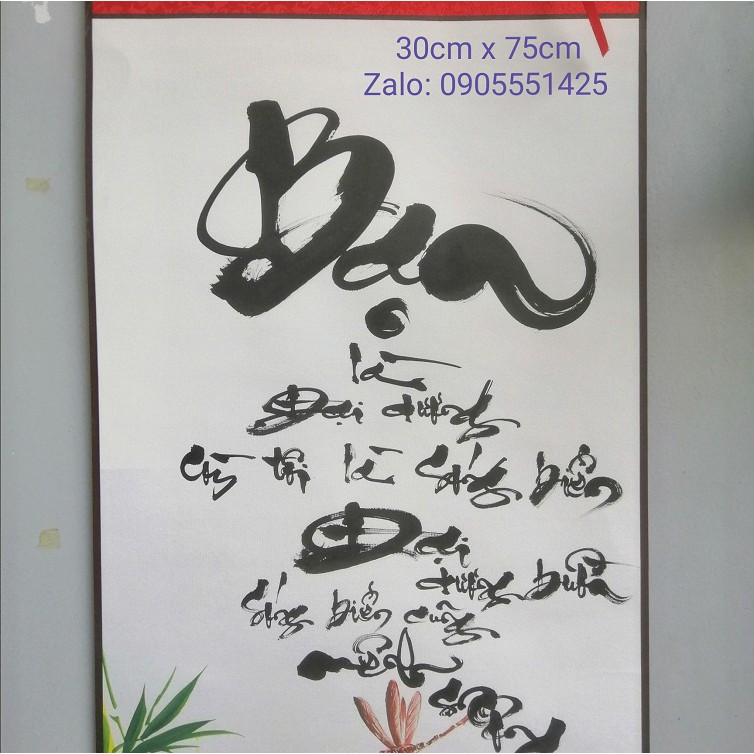 30cm x 75cm
Zalo: 0905551425
Bạn
là
Đại dương
thì là sóng biển
Đại
dương buồn
sóng biển cũng